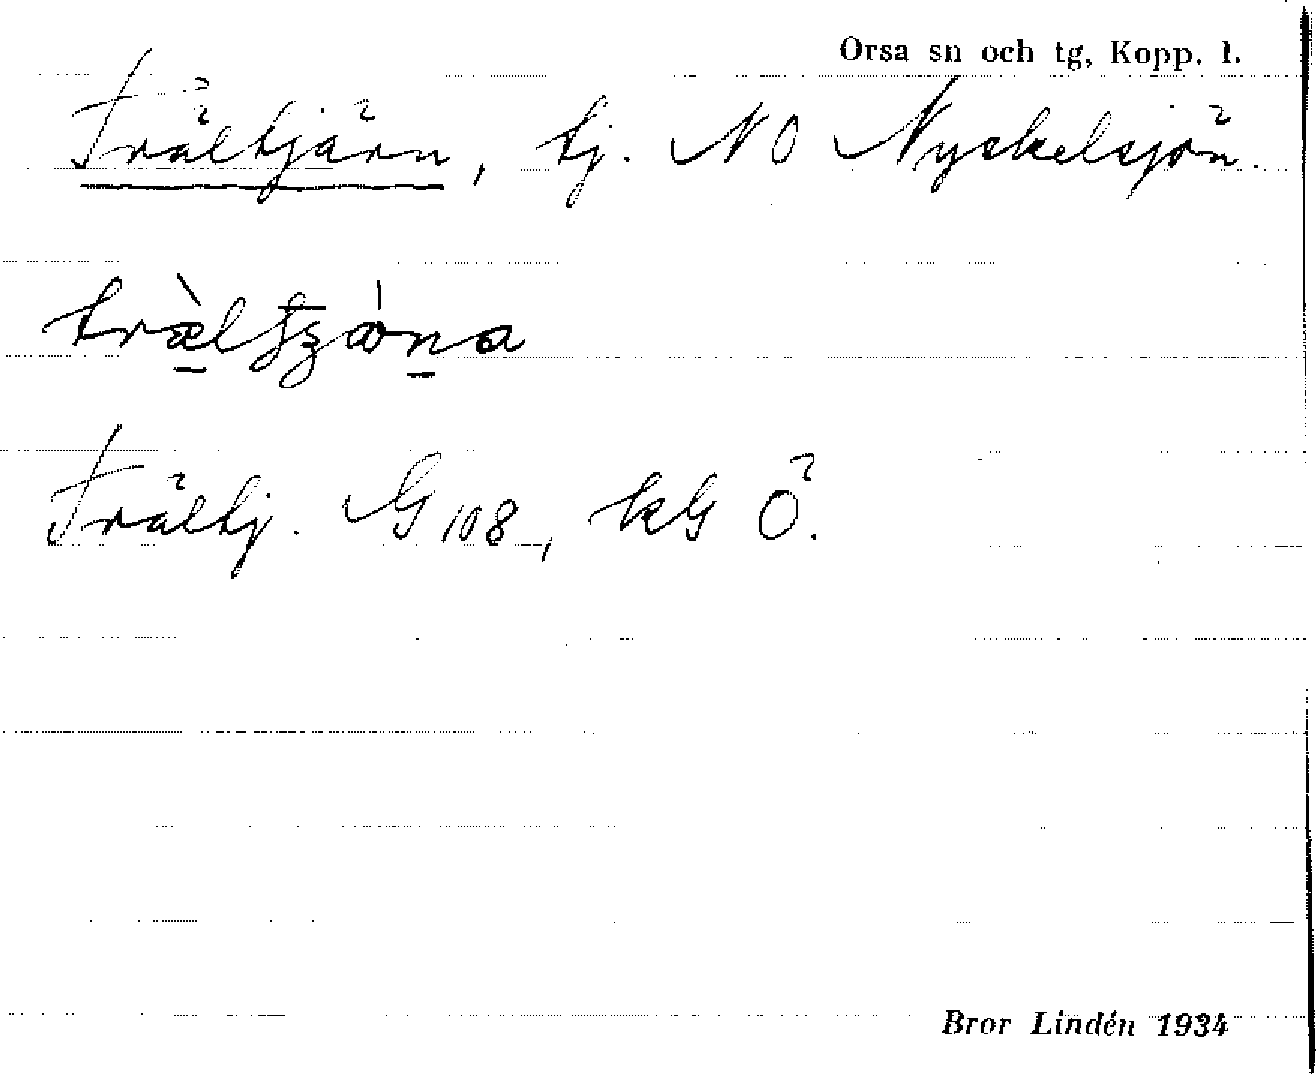 Orsa sn och tg, Kopp. l.
Trältjärn, tj. NO Nyckelsjön.
Trältj. G 108, kG Ö.
Bror Lindén 1934